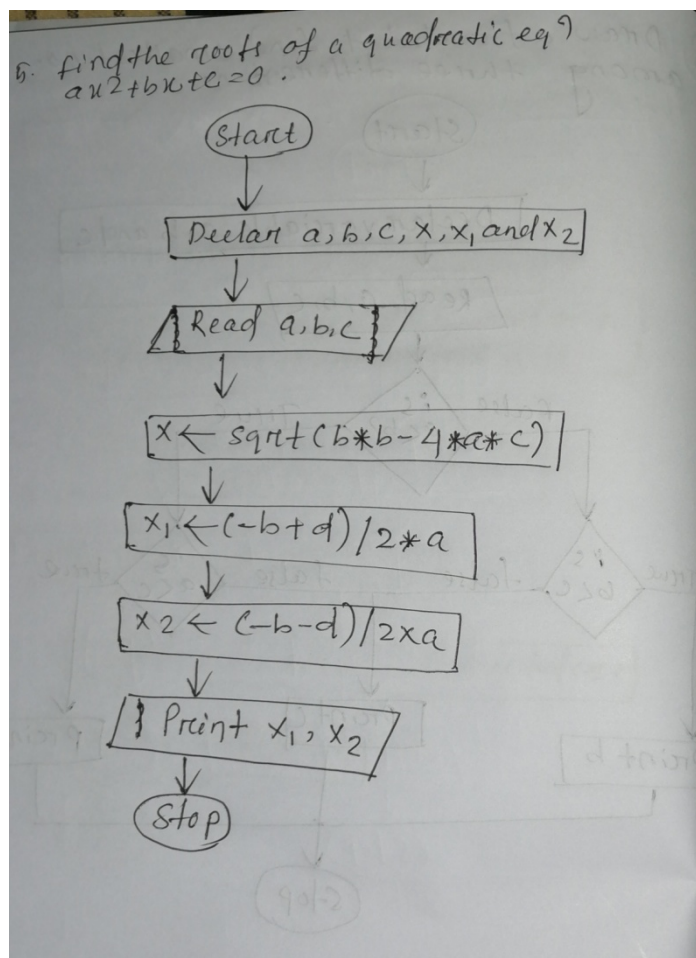 5. find the roots of a quadratic eqn
ax2+bx+c=0.
Start
Declar a, b, c, x, x1 and x2
Read a, b, c
x ← sqrt(b*b-4*a*c)
x1 ← (-b+d)/2*a
x2 ← (-b-d)/2xa
Print x1, x2
Stop